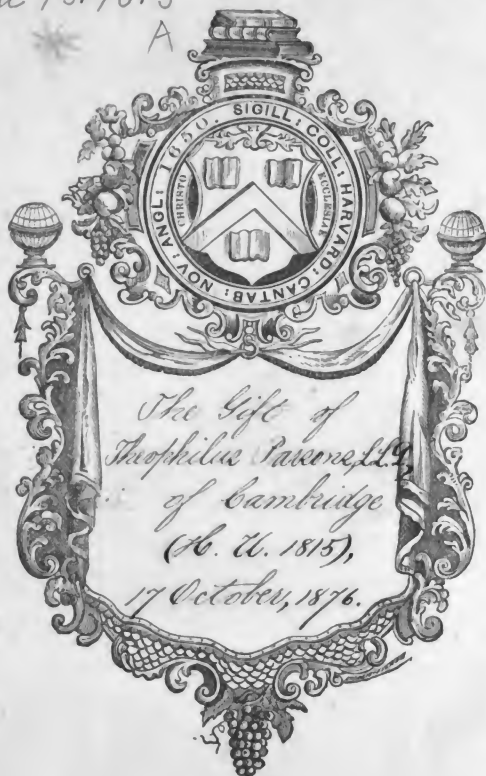 A
SIGILL: COLL: HARVARD: CANTAB: NOV: ANGL: 1650.
CHRISTO
ET
ECCLESIAE
The Gift of
Theophilus Parsons, LL.D.,
of Cambridge
(H. U. 1815),
17 October, 1876.